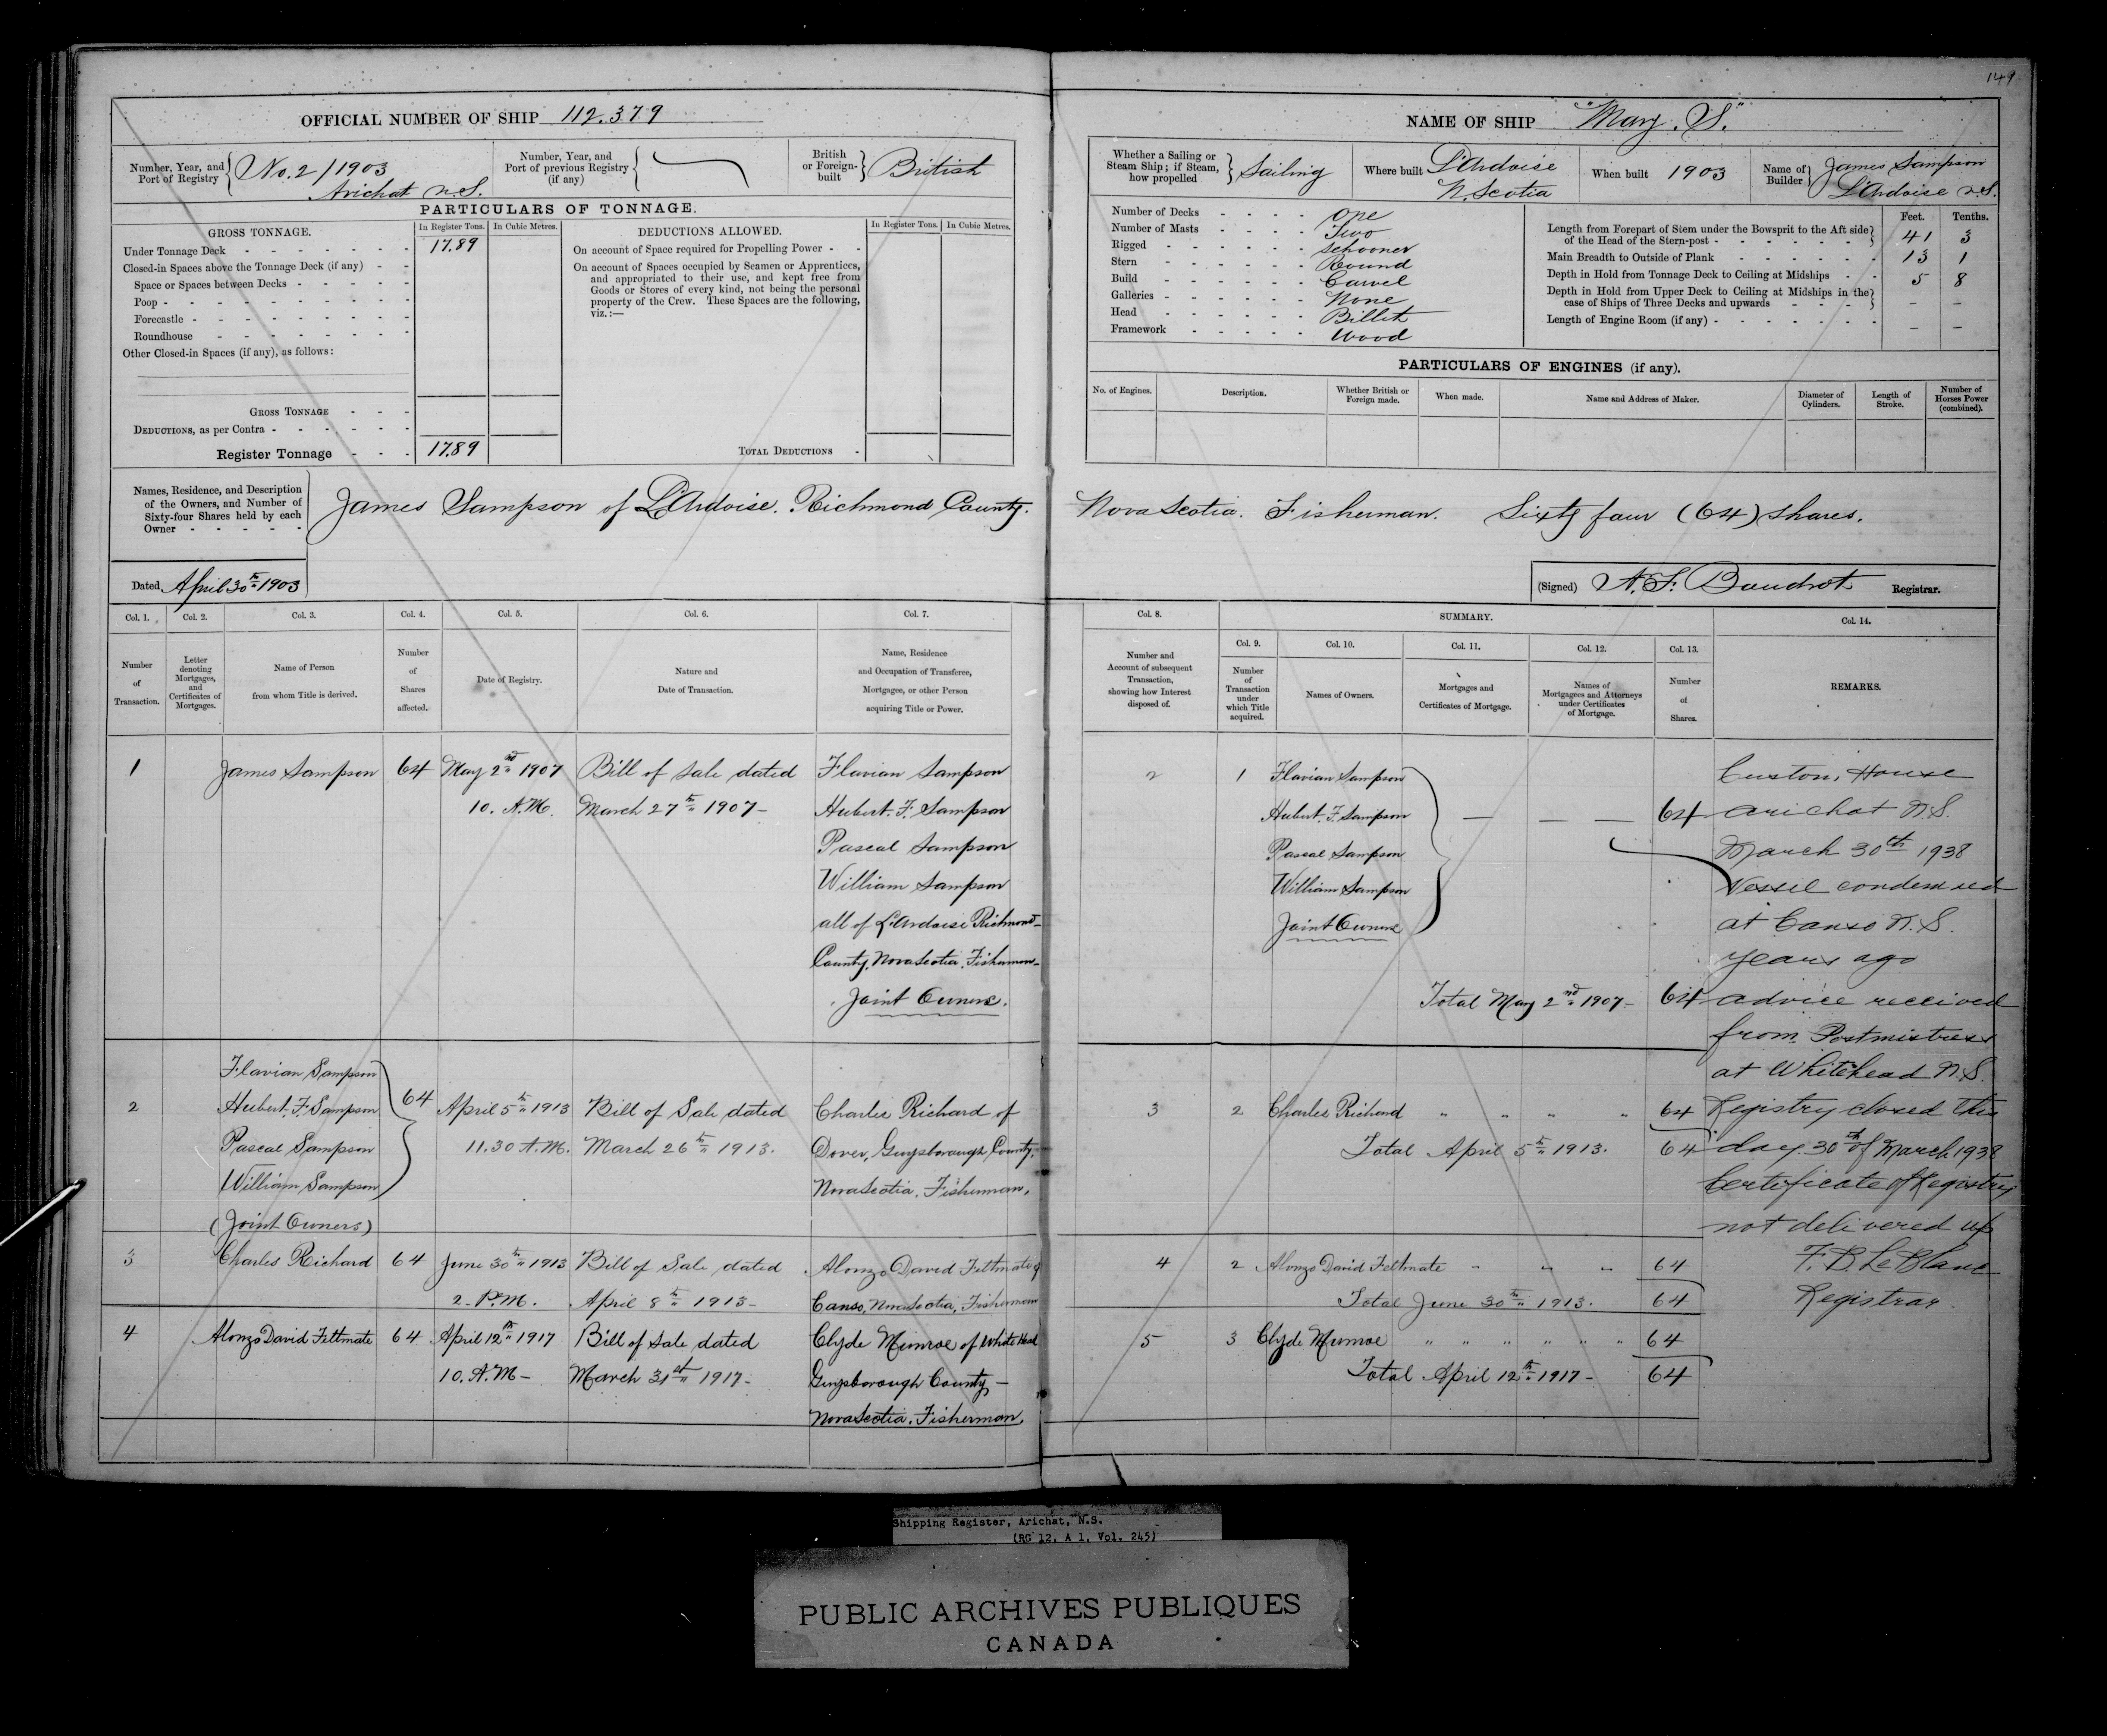 149
OFFICIAL NUMBER OF SHIP 112.379
Number, Year, and Port of Registry No. 2/1903
Arichat N.S.
Number, Year, and Port of previous Registry (if any)
British or Foreign-built British
PARTICULARS OF TONNAGE.
GROSS TONNAGE. In Register Tons. In Cubic Metres.
Under Tonnage Deck 17.89
Closed-in Spaces above the Tonnage Deck (if any)
Space or Spaces between Decks
Poop
Forecastle
Roundhouse
Other Closed-in Spaces (if any), as follows:
GROSS TONNAGE
DEDUCTIONS, as per Contra
Register Tonnage 17.89
DEDUCTIONS ALLOWED. In Register Tons. In Cubic Metres.
On account of Space required for Propelling Power
On account of Spaces occupied by Seamen or Apprentices,
and appropriated to their use, and kept free from
Goods or Stores of every kind, not being the personal
property of the Crew. These Spaces are the following,
viz.:—
TOTAL DEDUCTIONS
NAME OF SHIP "Mary. S."
Whether a Sailing or Steam Ship; if Steam, how propelled Sailing
Where built L'Ardoise
N. Scotia
When built 1903
Name of Builder James Sampson
L'Ardoise N.S.
Number of Decks One
Number of Masts Two
Rigged Schooner
Stern Round
Build Carvel
Galleries None
Head Billet
Framework Wood
Feet. Tenths.
Length from Forepart of Stem under the Bowsprit to the Aft side
of the Head of the Stern-post 41 3
Main Breadth to Outside of Plank 13 1
Depth in Hold from Tonnage Deck to Ceiling at Midships 5 8
Depth in Hold from Upper Deck to Ceiling at Midships in the
case of Ships of Three Decks and upwards – –
Length of Engine Room (if any) – –
PARTICULARS OF ENGINES (if any).
No. of Engines. Description. Whether British or Foreign made. When made. Name and Address of Maker. Diameter of Cylinders. Length of Stroke. Number of Horses Power (combined).
Names, Residence, and Description
of the Owners, and Number of
Sixty-four Shares held by each
Owner
James Sampson of L'Ardoise. Richmond County. Nova Scotia. Fisherman. Sixty four (64) shares.
Dated April 30th 1903
(Signed) A. F. Boudrot Registrar.
Col. 1. Col. 2. Col. 3. Col. 4. Col. 5. Col. 6. Col. 7.
Number of Transaction.
Letter denoting Mortgages, and Certificates of Mortgages.
Name of Person from whom Title is derived.
Number of Shares affected.
Date of Registry.
Nature and Date of Transaction.
Name, Residence and Occupation of Transferee, Mortgagee, or other Person acquiring Title or Power.
Col. 8. SUMMARY. Col. 14.
Col. 9. Col. 10. Col. 11. Col. 12. Col. 13.
Number and Account of subsequent Transaction, showing how Interest disposed of.
Number of Transaction under which Title acquired.
Names of Owners.
Mortgages and Certificates of Mortgage.
Names of Mortgagees and Attorneys under Certificates of Mortgage.
Number of Shares.
REMARKS.
1 James Sampson 64 May 2nd 1907 Bill of Sale dated Flavian Sampson
10. A.M. March 27th 1907- Hubert. F. Sampson
Pascal Sampson
William Sampson
all of L'Ardoise Richmond
County, Nova Scotia. Fishermen-
Joint Owners.
Flavian Sampson
2 Hubert. F. Sampson 64 April 5th 1913 Bill of Sale dated Charles Richard of
Pascal Sampson 11.30 A.M. March 26th 1913. Dover, Guysborough County.
William Sampson Nova Scotia. Fisherman.
(Joint Owners)
3 Charles Richard 64 June 30th 1913 Bill of Sale dated Alonzo David Feltmate of
2. P.M. April 8th 1913- Canso, Nova Scotia, Fisherman
4 Alonzo David Feltmate 64 April 12th 1917 Bill of Sale dated Clyde Munroe of White Head
10. A.M- March 31st 1917- Guysborough County-
Nova Scotia. Fisherman.
2 1 Flavian Sampson
Hubert. F. Sampson — — — 64
Pascal Sampson
William Sampson
Joint Owners
Total May 2nd 1907- 64
3 2 Charles Richard " " " " 64
Total April 5th 1913. 64
4 2 Alonzo David Feltmate " " " 64
Total June 30th 1913. 64
5 3 Clyde Munroe " " " " " " 64
Total April 12th 1917- 64
Custom House
Arichat N.S.
March 30th 1938
Vessel condemned
at Canso N.S.
years ago
advice received
from Postmistress
at Whitehead N.S.
Registry closed this
day. 30th of March 1938
Certificate of Registry
not delivered up
F. D. LeBlanc
Registrar.
Shipping Register, Arichat, N.S.
(RG 12, A 1, Vol. 245)
PUBLIC ARCHIVES PUBLIQUES
CANADA